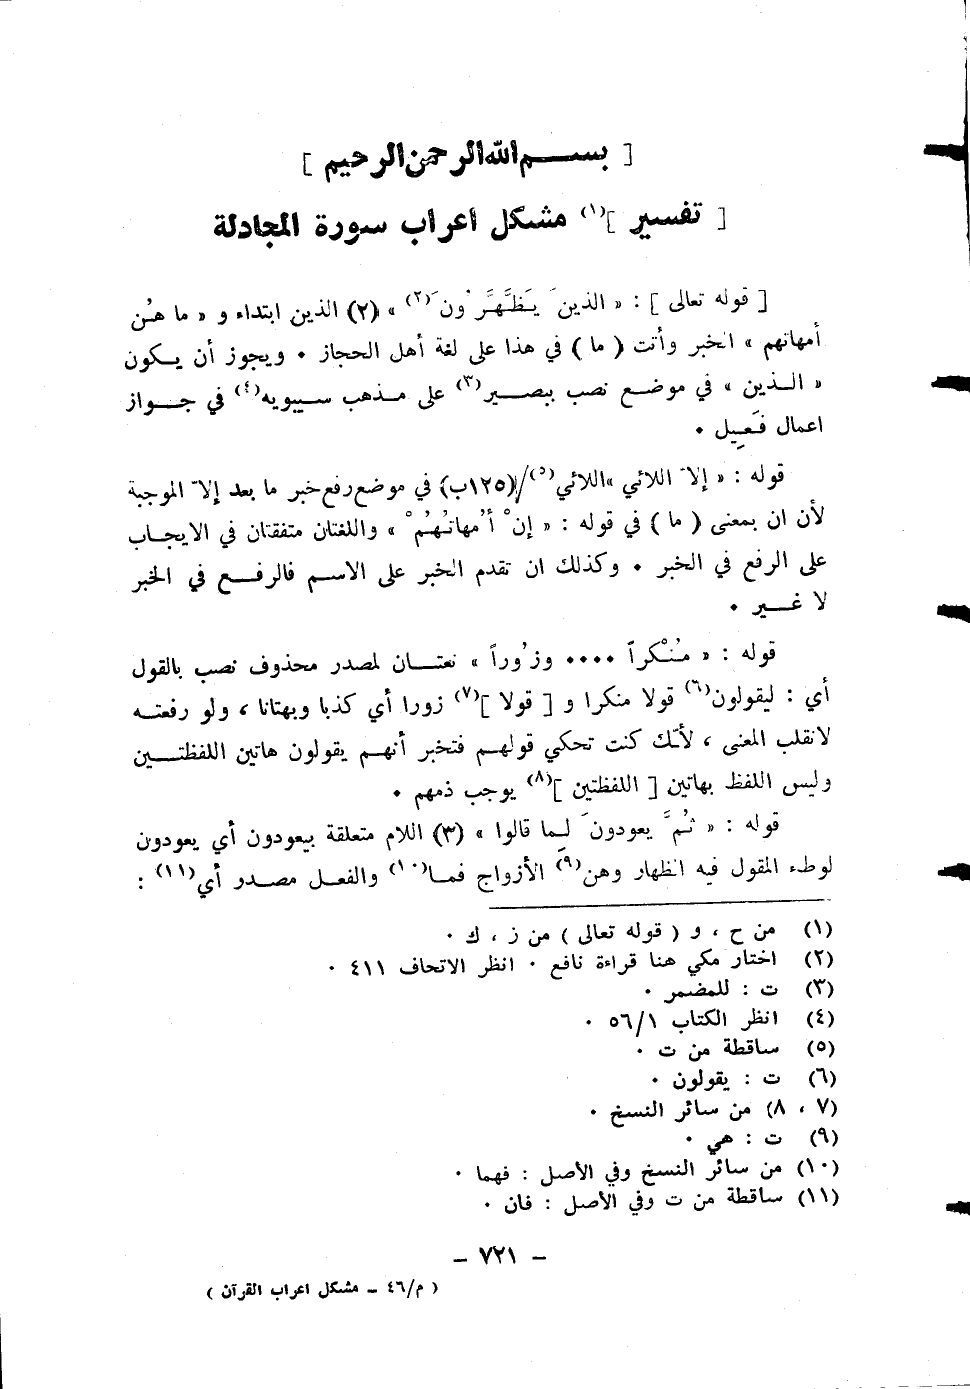 [ بسم الله الرحمن الرحيم ]
[ تفسير ](١) مشكل اعراب سورة المجادلة
[ قوله تعالى ] : « الذينَ يَظَّهَّرُونَ(٢) » (٢) الذين ابتداء و « ما هُن
أمهاتهم » الخبر وأتت ( ما ) في هذا على لغة أهل الحجاز ٠ ويجوز أن يكون
« الذين » في موضع نصب ببصير(٣) على مذهب سيبويه(٤) في جواز
اعمال فَعِيل ٠
قوله : « إلاّ اللائي »اللائي(٥)/(١٢٥ب) في موضع رفع خبر ما بعد إلاّ الموجبة
لأن ان بمعنى ( ما ) في قوله : « إنْ أُمهاتُهُمْ » واللغتان متفقتان في الايجاب
على الرفع في الخبر ٠ وكذلك ان تقدم الخبر على الاسم فالرفع في الخبر
لا غير ٠
قوله : « مُنْكراً ٠٠٠٠ وزُوراً » نعتان لمصدر محذوف نصب بالقول
أي : ليقولون(٦) قولا منكرا و [ قولا ](٧) زورا أي كذبا وبهتانا ، ولو رفعته
لانقلب المعنى ، لأنّك كنت تحكي قولهم فتخبر أنهم يقولون هاتين اللفظتين
وليس اللفظ بهاتين [ اللفظتين ](٨) يوجب ذمهم ٠
قوله : « ثُمَّ يعودونَ لِما قالوا » (٣) اللام متعلقة بيعودون أي يعودون
لوطء المقول فيه الظهار وهن(٩) الأزواج فما(١٠) والفعل مصدر أي(١١) :
(١) من ح ، و ( قوله تعالى ) من ز ، ك ٠
(٢) اختار مكي هنا قراءة نافع ٠ انظر الاتحاف ٤١١ ٠
(٣) ت : للمضمر ٠
(٤) انظر الكتاب ٥٦/١ ٠
(٥) ساقطة من ت ٠
(٦) ت : يقولون ٠
(٧ ، ٨) من سائر النسخ ٠
(٩) ت : هي ٠
(١٠) من سائر النسخ وفي الأصل : فهما ٠
(١١) ساقطة من ت وفي الأصل : فان ٠
– ٧٢١ –
( م/٤٦ – مشكل اعراب القرآن )